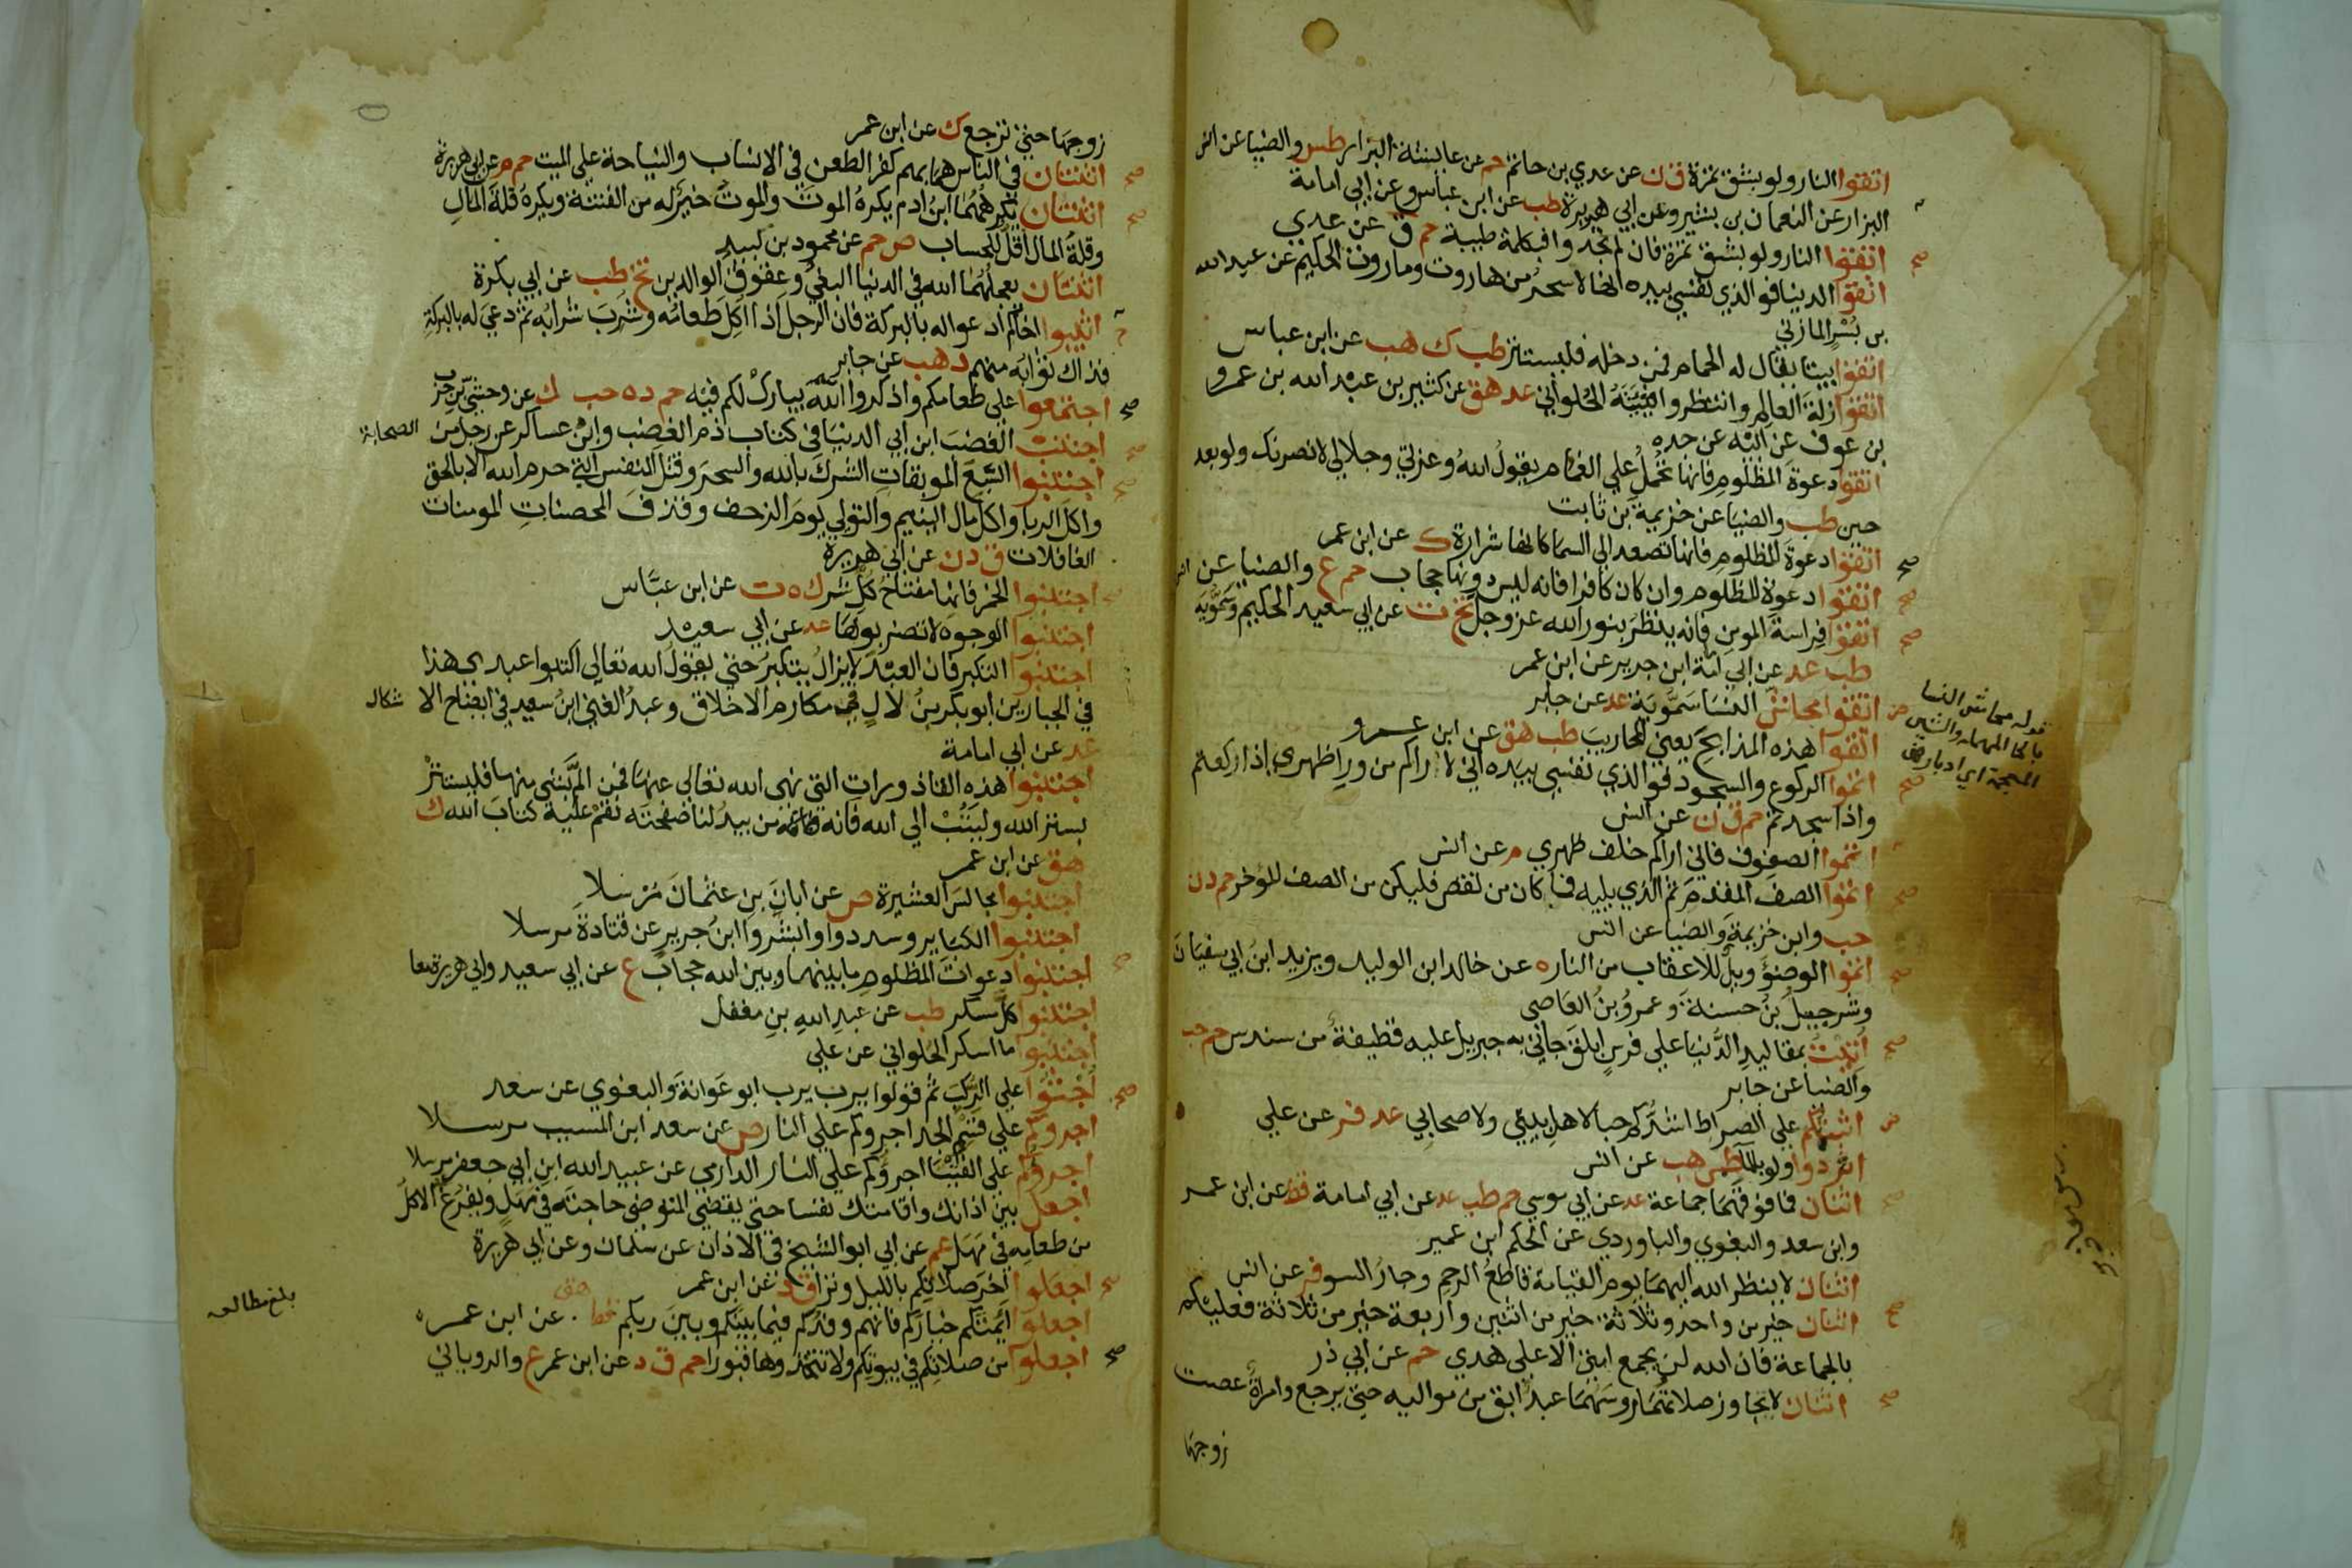 اتقوا النار ولو بشق تمرة ق ن عن عدي بن حاتم حم عن عايشة البزار طس والضيا عن انس
البزار عن النعمان بن بشير وعن ابي هريرة طب عن ابن عباس وعن ابي امامة
اتقوا النار ولو بشق تمرة فان لم تجدوا فبكلمة طيبة حم ق عن عدي
اتقوا الدنيا فو الذي نفسي بيده انها لاسحر من هاروت وماروت الحكيم عن عبد الله
بن بُسْرٍ المازني
اتقوا بيتا يقال له الحمام فمن دخله فليستتر طب ك هب عن ابن عباس
اتقوا زلة العالم وانتظروا فيئته الحلواني عد هق عن كثير بن عبد الله بن عمرو
بن عوف عن ابيه عن جده
اتقوا دعوة المظلوم فانها تحمل على الغمام يقول الله وعزتي وجلالي لانصرنك ولو بعد
حين طب والضيا عن خزيمة بن ثابت
اتقوا دعوة المظلوم فانها تصعد الى السما كانها شرارة ك عن ابن عمر
اتقوا دعوة المظلوم وان كان كافرا فانه ليس دونها حجاب حم ع والضيا عن انس
اتقوا فراسة المومن فانه ينظر بنور الله عز وجل تخ ت عن ابي سعيد الحكيم وسمويه
طب عد عن ابي امة ابن جرير عن ابن عمر
اتقوا محاش النسا سمويه عد عن جابر
قوله محاش النسا
بالحا المهملة والشين
المعجمة اي ادبارهن
اتقوا هذه المذابح يعني المحاريب طب هق عن ابن عمرو
اتموا الركوع والسجود فو الذي نفسي بيده اني لاراكم من ورا ظهري اذا ركعتم
واذا سجدتم حم ق ن عن انس
اتموا الصفوف فاني اراكم خلف ظهري م عن انس
اتموا الصف المقدم ثم الذي يليه فما كان من نقص فليكن من الصف المؤخر حم د ن
حب وابن خزيمة والضيا عن انس
اتموا الوضؤ ويل للاعقاب من النار ه عن خالد ابن الوليد ويزيد ابن ابي سفيان
وشرحبيل بن حسنة وعمرو بن العاصى
اتيت بمقاليد الدنيا على فرس ابلق جاني به جبريل عليه قطيفة من سندس حم حب
والضيا عن جابر
اثبتكم على الصراط اشدكم حبا لاهل بيتي ولاصحابي عد فر عن علي
اثردوا ولو بالما طس هب عن انس
اثنان فما فوقهما جماعة عد عن ابي موسي حم طب عد عن ابي امامة قط عن ابن عمر
وابن سعد والبغوي والباوردي عن الحكم ابن عمير
اثنان لا ينظر الله اليهما يوم القيامة قاطع الرحم وجار السو فر عن انس
اثنان خير من واحد وثلاثة خير من اثنين واربعة خير من ثلاثة فعليكم
بالجماعة فان الله لن يجمع امتي الا على هدي حم عن ابي ذر
اثنان لا تجاوز صلاتهما روسهما عبد ابق من مواليه حتى يرجع وامراة عصت
زوجها
زوجها حتى ترجع ك عن ابن عمر
اثنتان في الناس هما بهم كفر الطعن في الانساب والنياحة على الميت حم م عن ابي هريرة
اثنتان يكرههما ابن ادم يكره الموت والموت خير له من الفتنة ويكره قلة المال
وقلة المال اقل للحساب ص حم عن محمود بن لبيد
اثنتان يعجلهما الله في الدنيا البغي وعقوق الوالدين تخ طب عن ابي بكرة
اثيبوا اخاكم ادعوا له بالبركة فان الرجل اذا اكل طعامه وشرب شرابه ثم دعي له بالبركة
فذاك ثوابه منهم د هب عن جابر
اجتمعوا على طعامكم واذكروا اسم الله يبارك لكم فيه حم د ه حب ك عن وحشي بن حرب
اجتنب الغضب ابن ابي الدنيا في كتاب ذم الغضب وابن عساكر عن رجل من الصحابة
اجتنبوا السبع الموبقات الشرك بالله والسحر وقتل النفس التي حرم الله الا بالحق
واكل الربا واكل مال اليتيم والتولي يوم الزحف وقذف المحصنات المومنات
الغافلات ق د ن عن ابي هريرة
اجتنبوا الخمر فانها مفتاح كل شر ك ه ت عن ابن عباس
اجتنبوا الوجوه لا تضربوها عد عن ابي سعيد
اجتنبوا التكبر فان العبد لا يزال يتكبر حتى يقول الله تعالى اكتبوا عبدي هذا
في الجبارين ابو بكر بن لال في مكارم الاخلاق وعبد الغني ابن سعيد في ايضاح الاشكال
عد عن ابي امامة
اجتنبوا هذه القاذورات التي نهى الله تعالى عنها فمن الم بشي منها فليستتر
بستر الله وليتب الى الله فانه من يبد لنا صفحته نقم عليه كتاب الله ك
هق عن ابن عمر
اجتنبوا مجالس العشيرة ص عن ابان بن عثمان مرسلا
اجتنبوا الكباير وسددوا وابشروا ابن جرير عن قتادة مرسلا
اجتنبوا دعوات المظلوم ما بينها وبين الله حجاب ع عن ابي سعيد وابي هريرة معا
اجتنبوا كل مسكر طب عن عبد الله بن مغفل
اجتنبوا ما اسكر الحلواني عن علي
اجثوا على الركب ثم قولوا يرب يرب ابو عوانة والبغوي عن سعد
اجروكم على قسم الجد اجروكم على النار ص عن سعد ابن المسيب مرسلا
اجروكم على الفتيا اجروكم على النار الدارمي عن عبيد الله ابن ابي جعفر مرسلا
اجعل بين اذانك واقامتك نفسا حتى يقضي المتوضي حاجته في مهل ويفرغ الاكل
من طعامه في مهل عم عن ابي ابو الشيخ في الاذان عن سلمان وعن ابي هريرة
اجعلوا اخر صلاتكم بالليل وترا ق د عن ابن عمر
اجعلوا ايمتكم خياركم فانهم وفدكم فيما بينكم وبين ربكم قط هق عن ابن عمر
اجعلوا من صلاتكم في بيوتكم ولا تتخذوها قبورا حم ق د عن ابن عمر ع والروياني
بلغ مطالعه